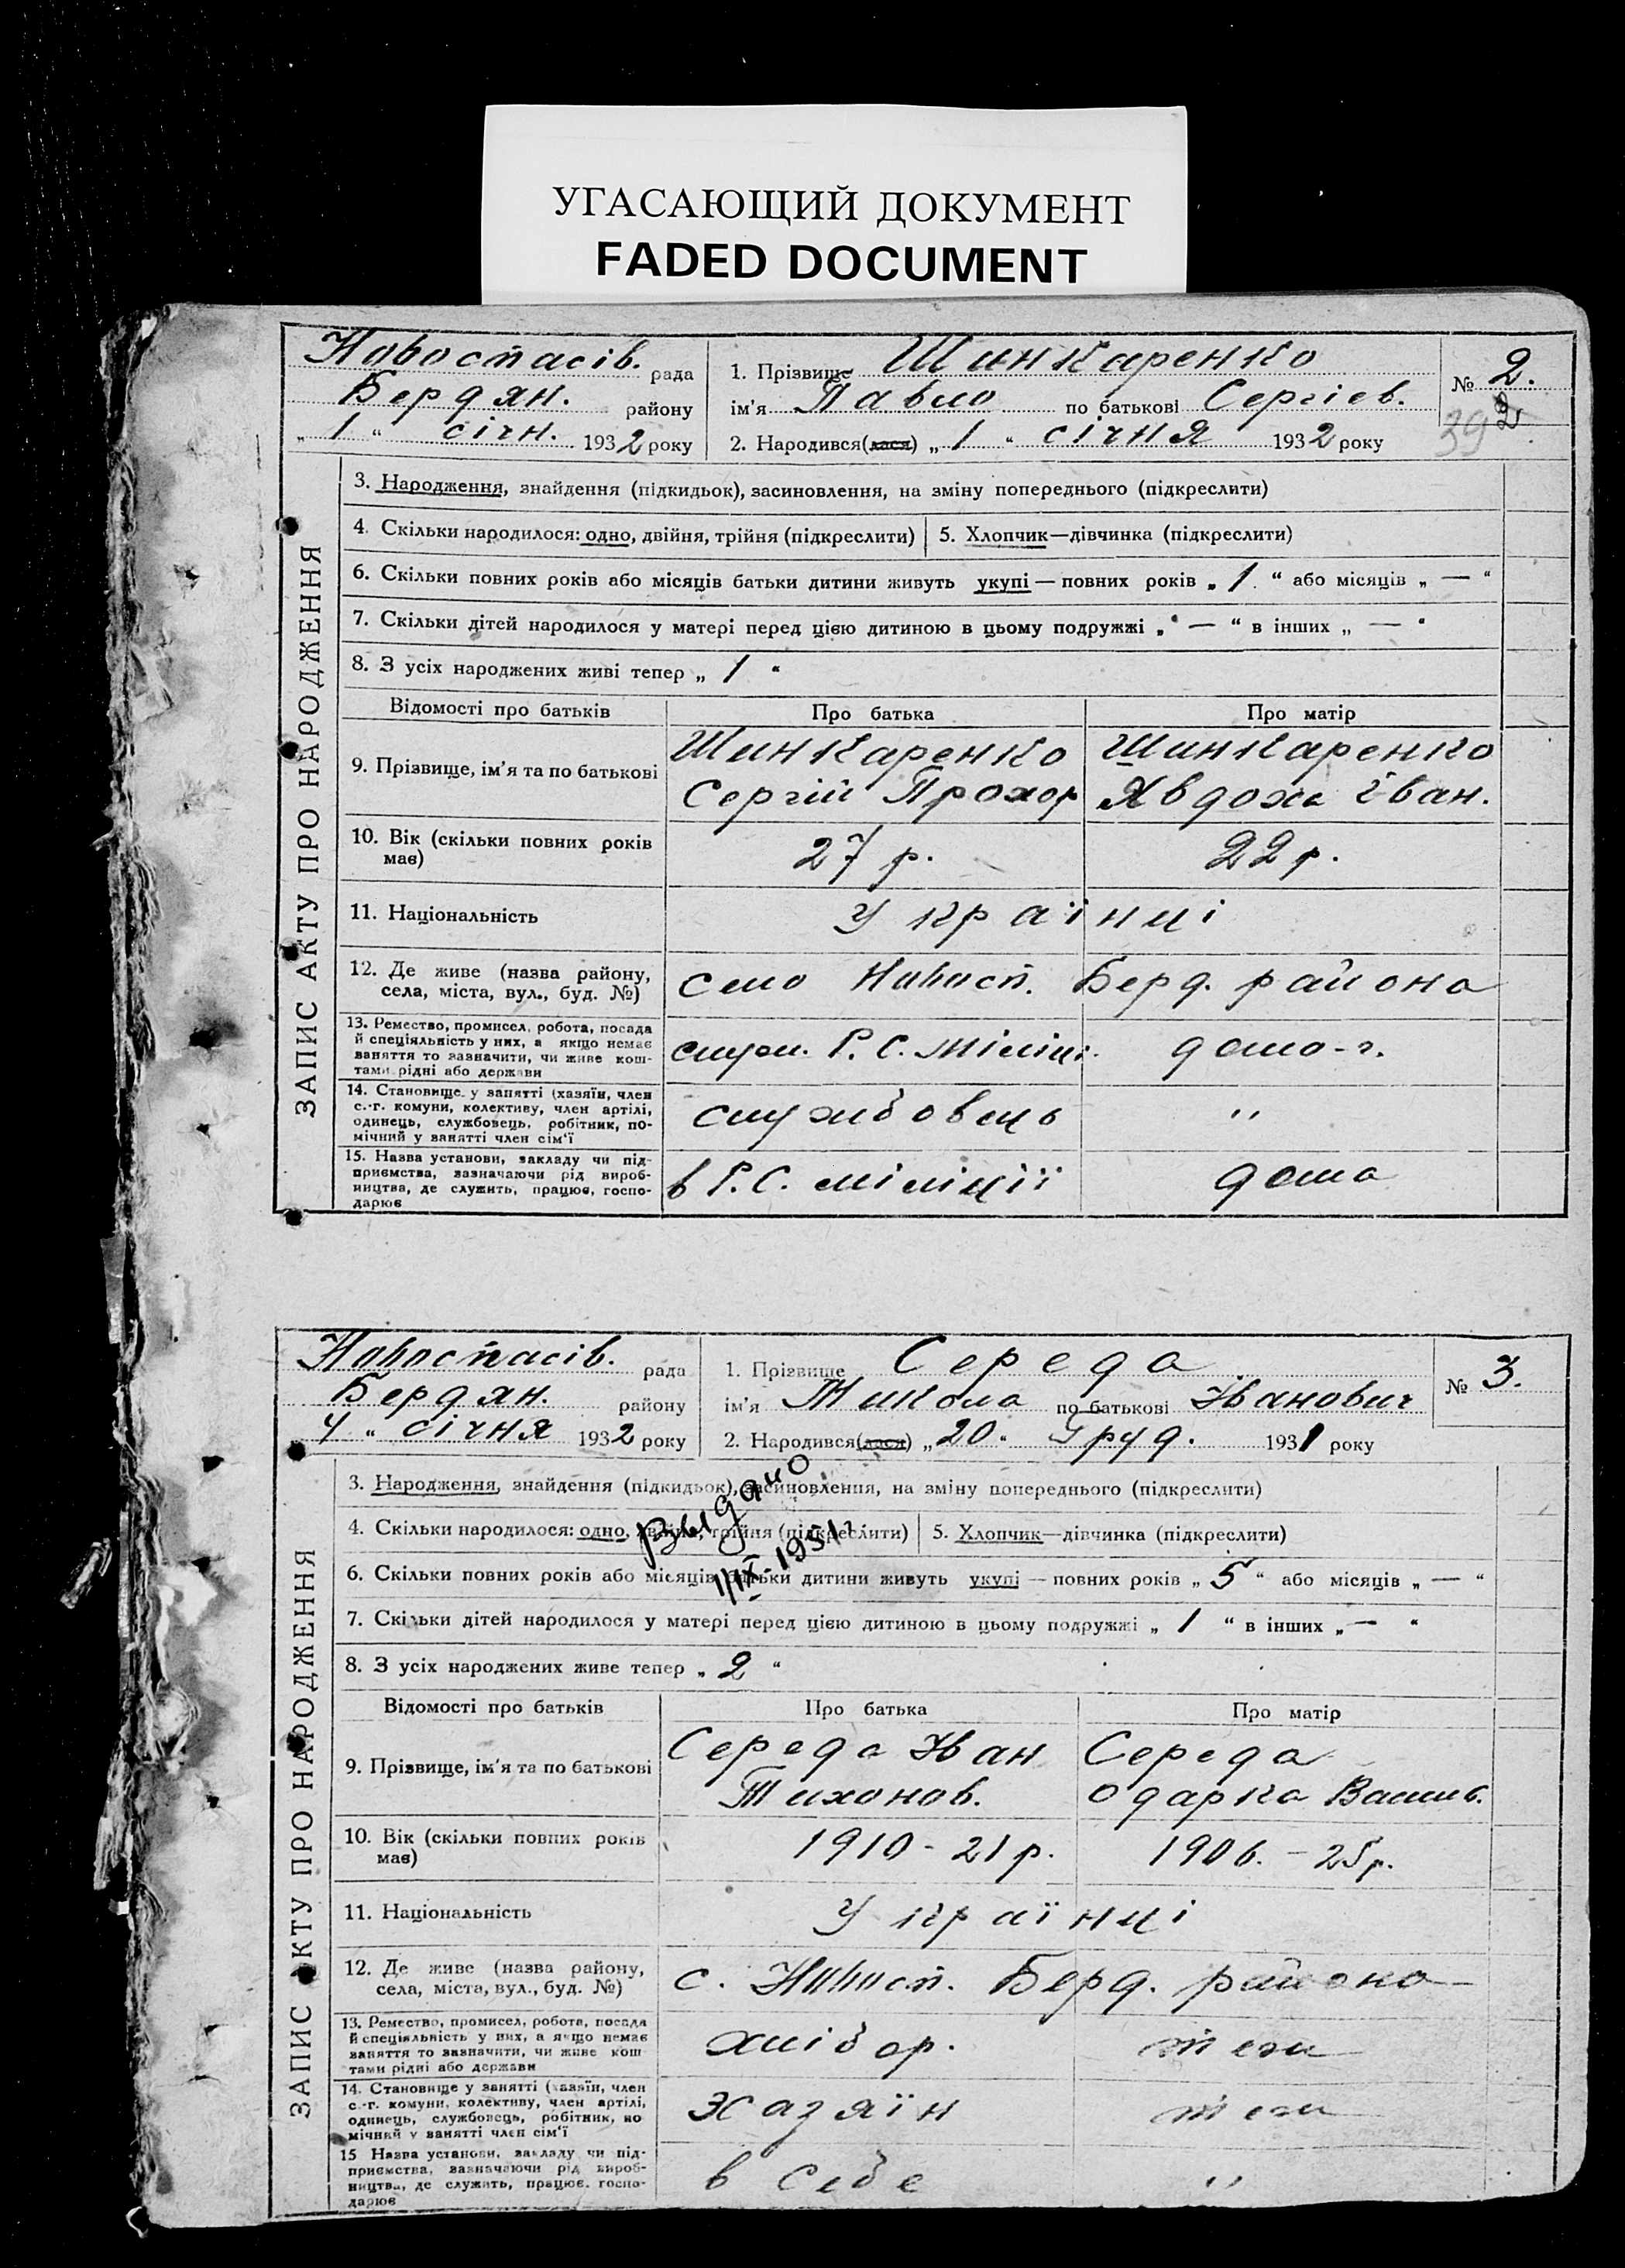 УГАСАЮЩИЙ ДОКУМЕНТ
FADED DOCUMENT
Новоспасів. рада
Бердян. району
„ 1 “ січн. 1932 року
1. Прізвище Шинкаренко
ім’я Павло по батькові Сергіев.
2. Народився(лася) „ 1 “ січня 1932 року
№ 2.
2
39
ЗАПИС АКТУ ПРО НАРОДЖЕННЯ
3. Народження, знайдення (підкидьок), засиновлення, на зміну попереднього (підкреслити)
4. Скільки народилося: одно, двійня, трійня (підкреслити)
5. Хлопчик—дівчинка (підкреслити)
6. Скільки повних років або місяців батьки дитини живуть укупі — повних років „ 1 “ або місяців „ — “
7. Скільки дітей народилося у матері перед цією дитиною в цьому подружжі „ — “ в інших „ — “
8. З усіх народжених живі тепер „ 1 “
Відомості про батьків
Про батька
Про матір
9. Прізвище, ім’я та по батькові
Шинкаренко
Сергій Прохор
Шинкаренко
Явдоха Іван.
10. Вік (скільки повних років
має)
27 р.
22 р.
11. Національність
Українці
12. Де живе (назва району,
села, міста, вул., буд. №)
село Новосп. Берд. района
13. Ремество, промисел, робота, посада
й спеціяльність у них, а якщо немає
заняття то зазначити, чи живе кош-
тами рідні або держави
служ. Р. С. Міліції.
домо-г.
14. Становище у занятті (хазяїн, член
с.-г. комуни, колективу, член артілі,
одинець, службовець, робітник, по-
мічний у занятті член сім’ї
службовець
"
15. Назва установи, закладу чи під-
приємства, зазначаючи рід вироб-
ництва, де служить, працює, госпо-
дарює
в Р. С. міліції
дома
Новоспасів. рада
Бердян. району
4 “ січня 1932 року
1. Прізвище Середа
ім’я Микола по батькові Іванович
2. Народився(лася) „ 20 “ Груд. 1931 року
№ 3.
ЗАПИС АКТУ ПРО НАРОДЖЕННЯ
3. Народження, знайдення (підкидьок), засиновлення, на зміну попереднього (підкреслити)
4. Скільки народилося: одно, двійня, трійня (підкреслити)
5. Хлопчик—дівчинка (підкреслити)
6. Скільки повних років або місяців батьки дитини живуть укупі — повних років „ 5 “ або місяців „ — “
7. Скільки дітей народилося у матері перед цією дитиною в цьому подружжі „ 1 “ в інших „ — “
8. З усіх народжених живе тепер „ 2 “
Відомості про батьків
Про батька
Про матір
9. Прізвище, ім’я та по батькові
Середа Іван
Тихонов.
Середа
Одарка Васил.
10. Вік (скільки повних років
має)
1910 - 21 р.
1906. - 25 р.
11. Національність
Українці
12. Де живе (назва району,
села, міста, вул., буд. №)
с. Новосп. Берд. района
13. Ремество, промисел, робота, посада
й спеціяльність у них, а якщо немає
заняття то зазначити, чи живе кош
тами рідні або держави
хлібор.
теж
14. Становище у занятті (хазяїн, член
с.-г. комуни, колективу, член артілі,
одинець, службовець, робітник, по
мічний у занятті член сім’ї
хазяїн
теж
15 Назва установи, закладу чи під-
приємства, зазначаючи рід вироб-
ництва, де служить, працює, госпо-
дарює
в себе
"